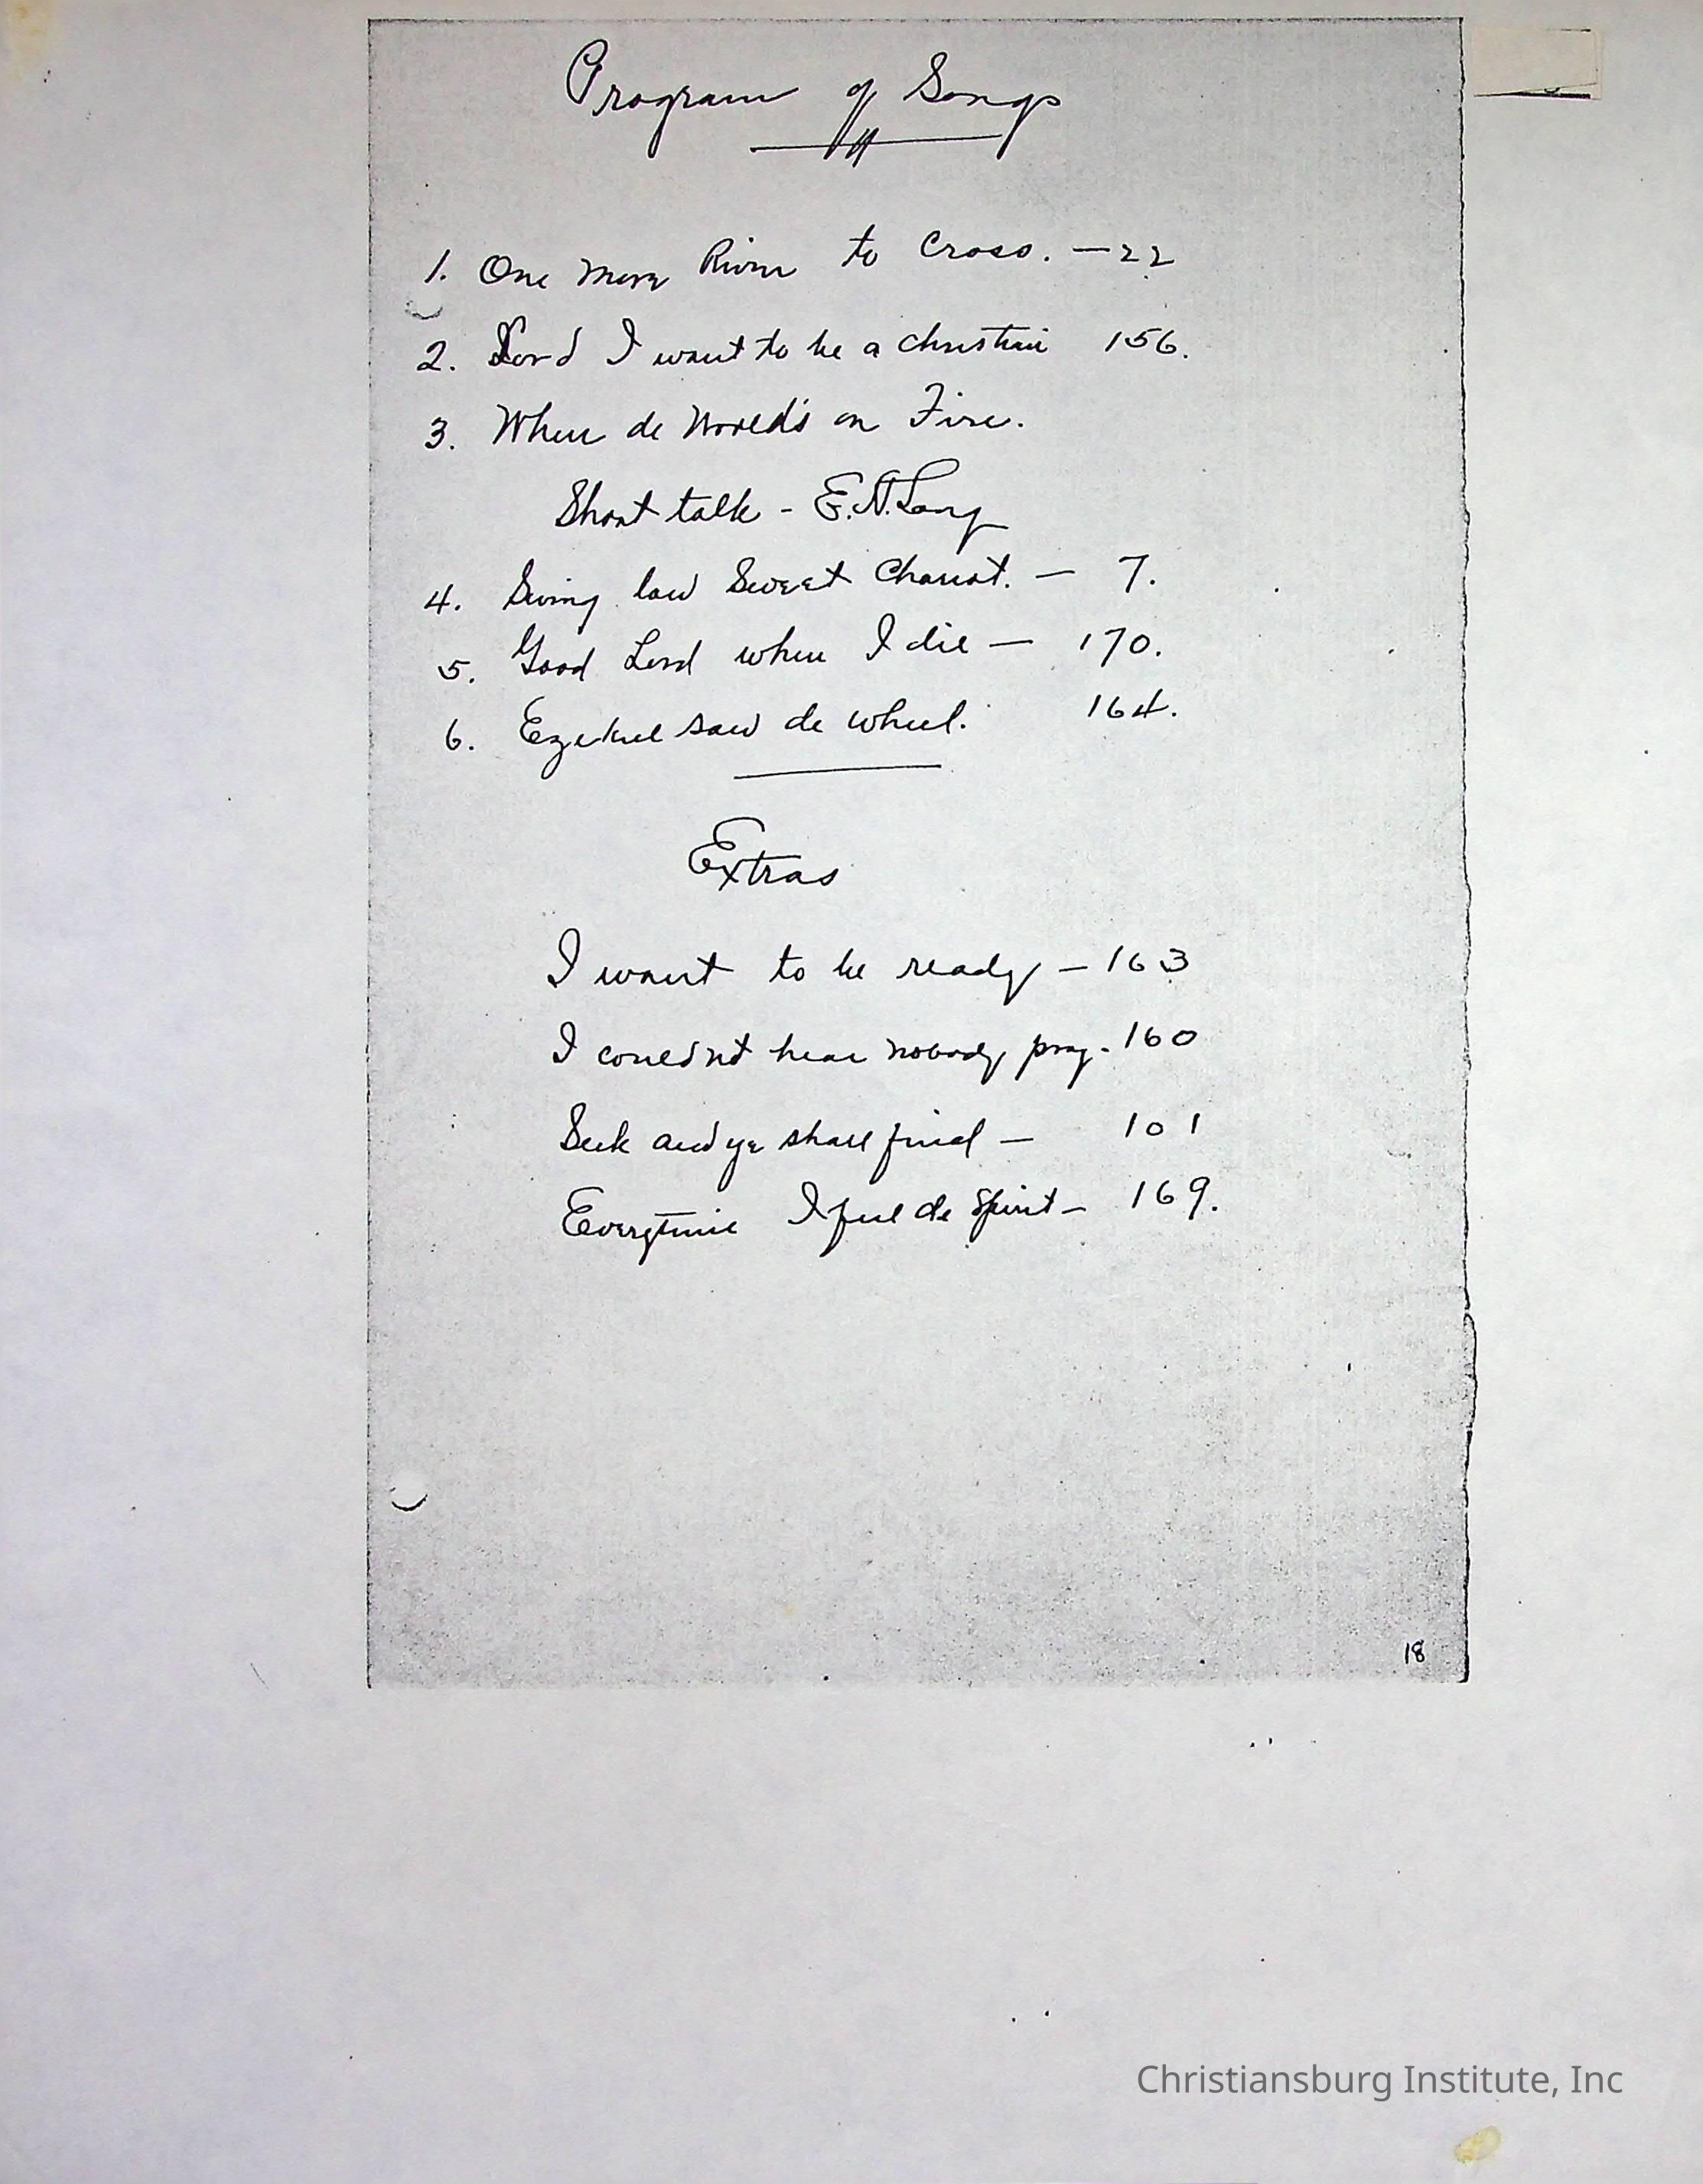 Program of Songs
1. One more River to Cross. — 22
2. Lord I want to be a christian 156.
3. When de World's on Fire.
Short talk - E.A. Long
4. Swing low Sweet Chariot. — 7.
5. Good Lord when I die — 170.
6. Ezekiel saw de wheel. 164.
Extras
I want to be ready — 163
I couldnt hear nobody pray - 160
Seek and ye shall find — 101
Everytime I feel de Spirit — 169.
18
Christiansburg Institute, Inc